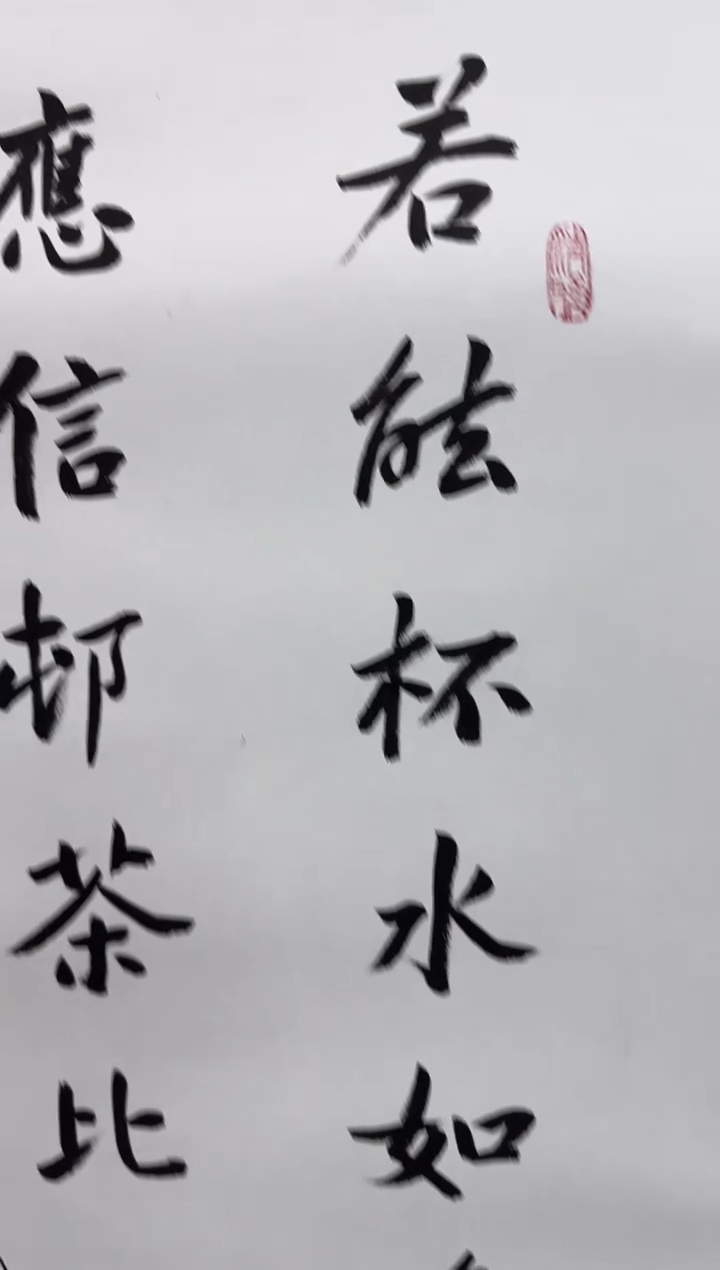 若能杯水如
應信邨茶比